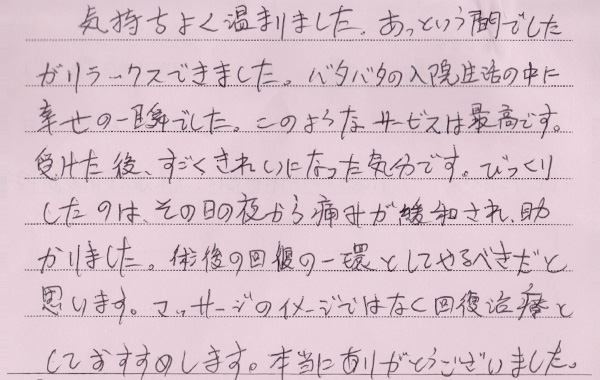 気持ちよく温まりました。あっという間でした
がリラックスできました。バタバタの入院生活の中に
幸せの一瞬でした。このようなサービスは最高です。
受けた後、すごくきれいになった気分です。びっくり
したのは、その日の夜から痛みが緩和され、助
かりました。術後の回復の一環としてやるべきだと
思います。マッサージのイメージではなく回復治療と
しておすすめします。本当にありがとうございました。